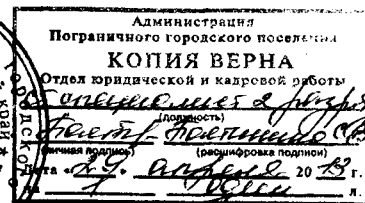 Администрация
Пограничного городского поселения
КОПИЯ ВЕРНА
Отдел юридической и кадровой работы
специалист 2 разря
(должность)
(личная подпись) (расшифровка подписи)
Дата «29» апреля 2013 г.
1 один л.
городско
край